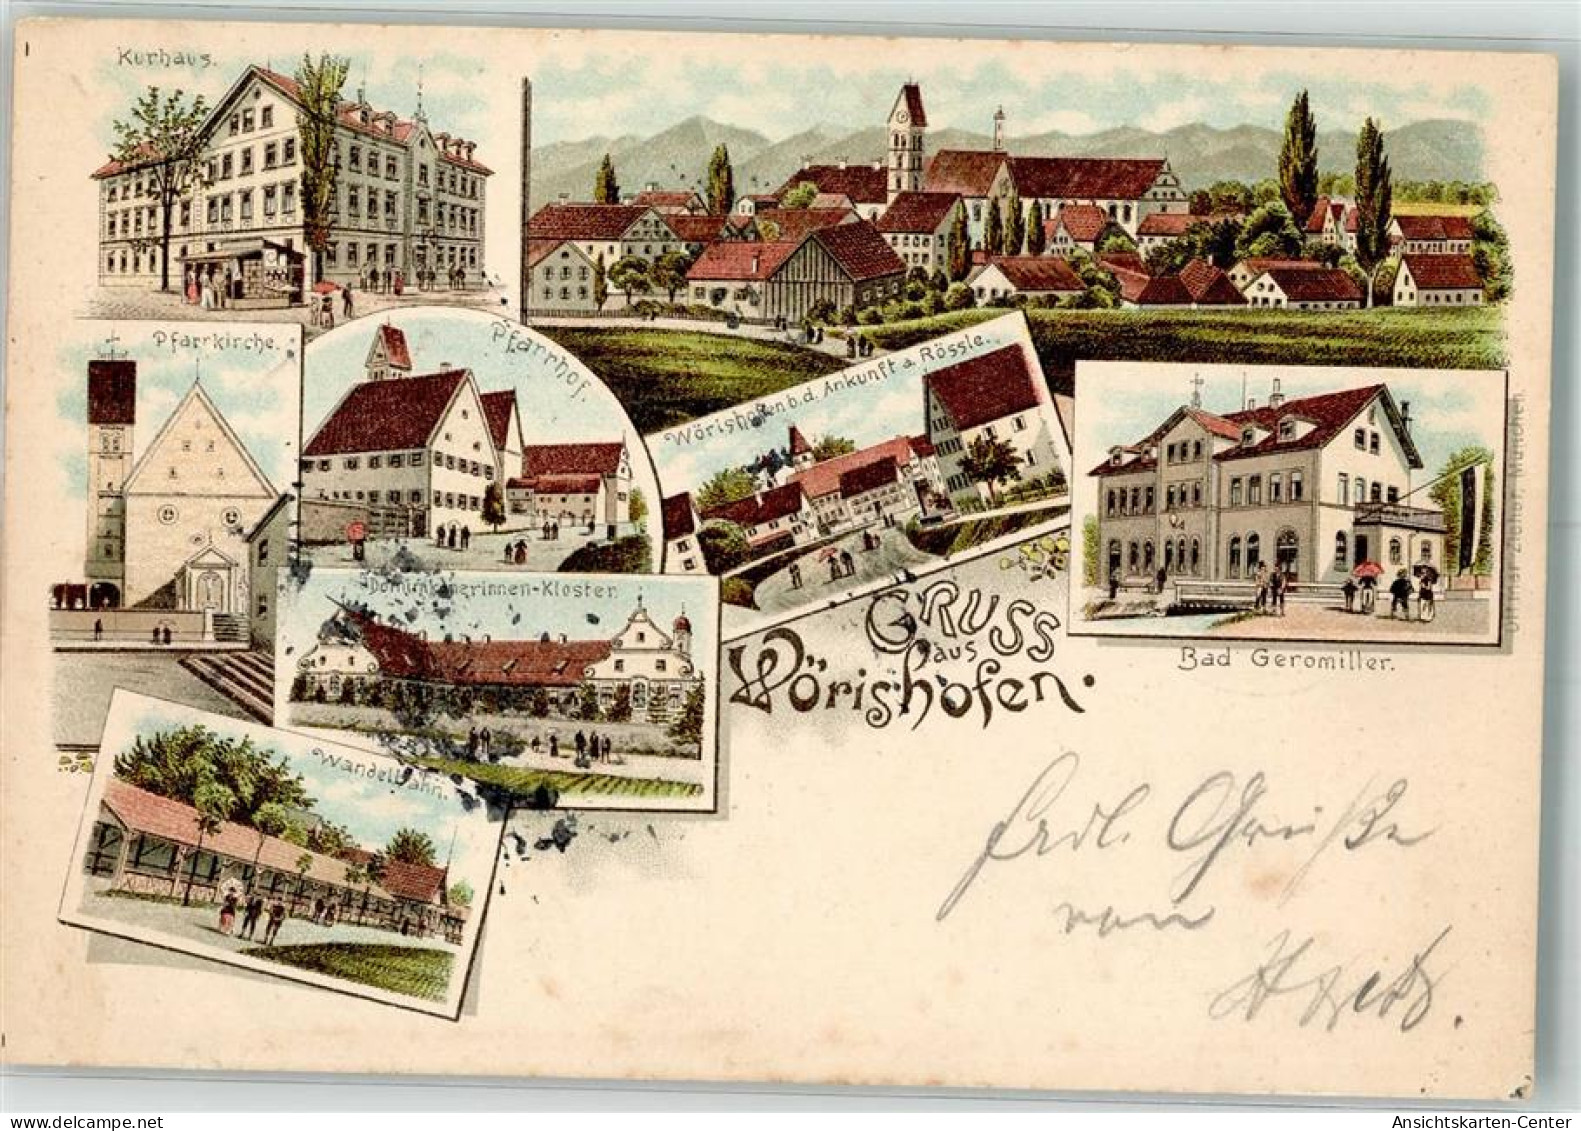 Kurhaus.
Pfarrkirche.
Pfarrhof.
Wörishofen b.d. Ankunft a. Rössle.
Dominikanerinnen-Kloster.
GRUSS
aus
Wörishofen.
Bad Geromiller.
Wandelbahn.
Ottmar Zieher, München.
Grüße
von
Ansichtskarten-Center